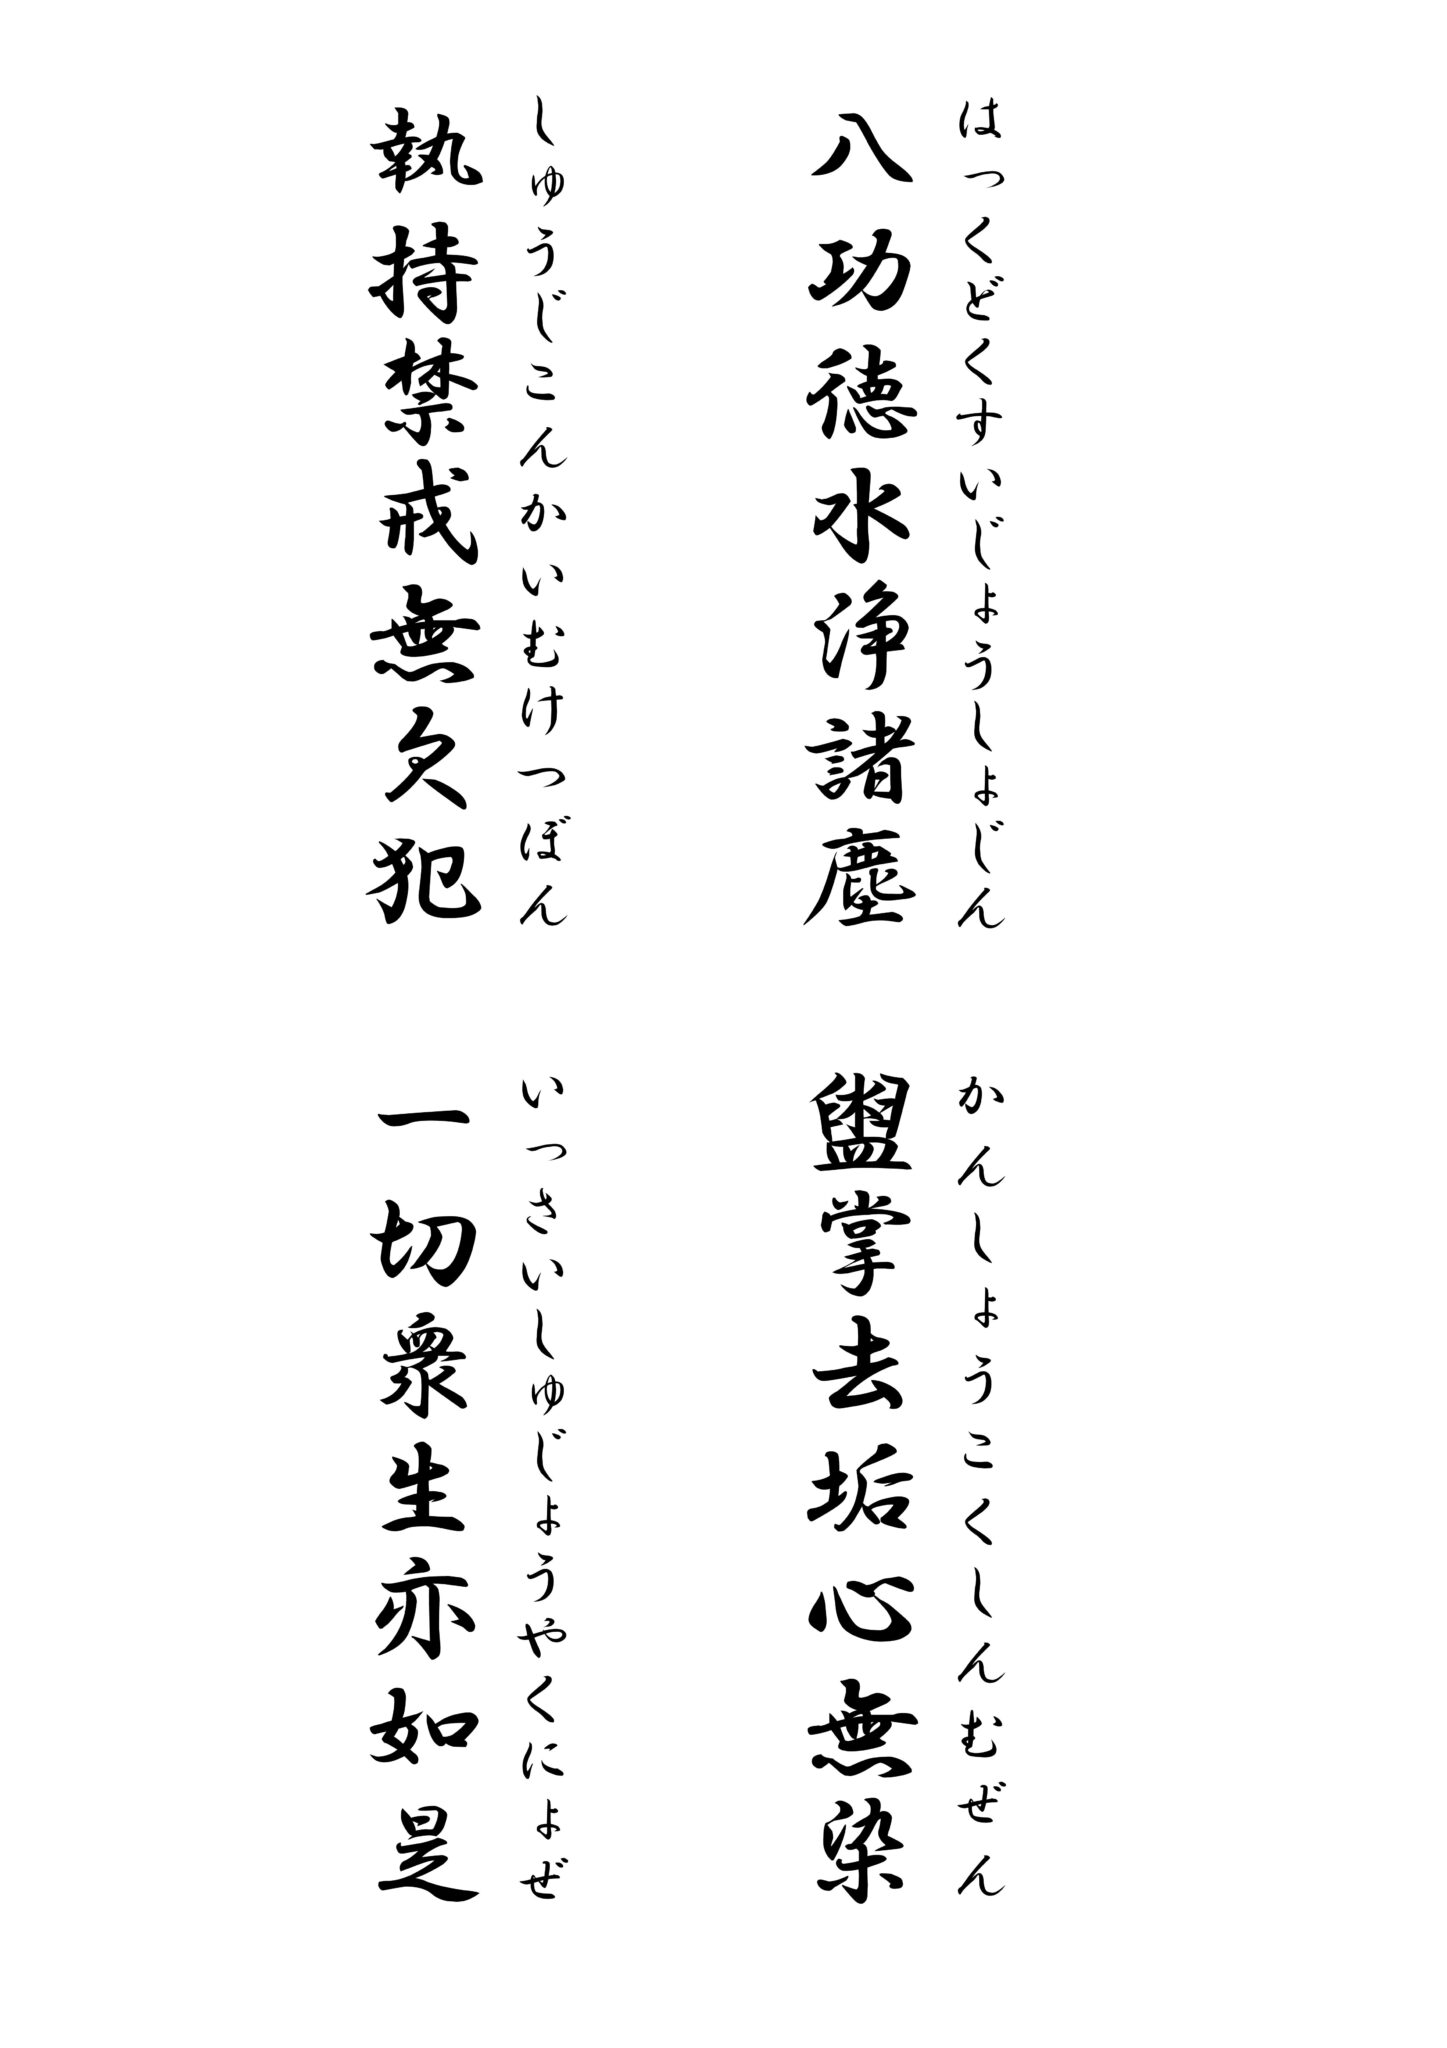 はっくどくすいじょうしょじん
八功徳水浄諸塵
かんしょうこくしんむぜん
盥掌去垢心無染
しゅうじこんかいむけつぼん
執持禁戒無欠犯
いっさいしゅじょうやくにょぜ
一切衆生亦如是